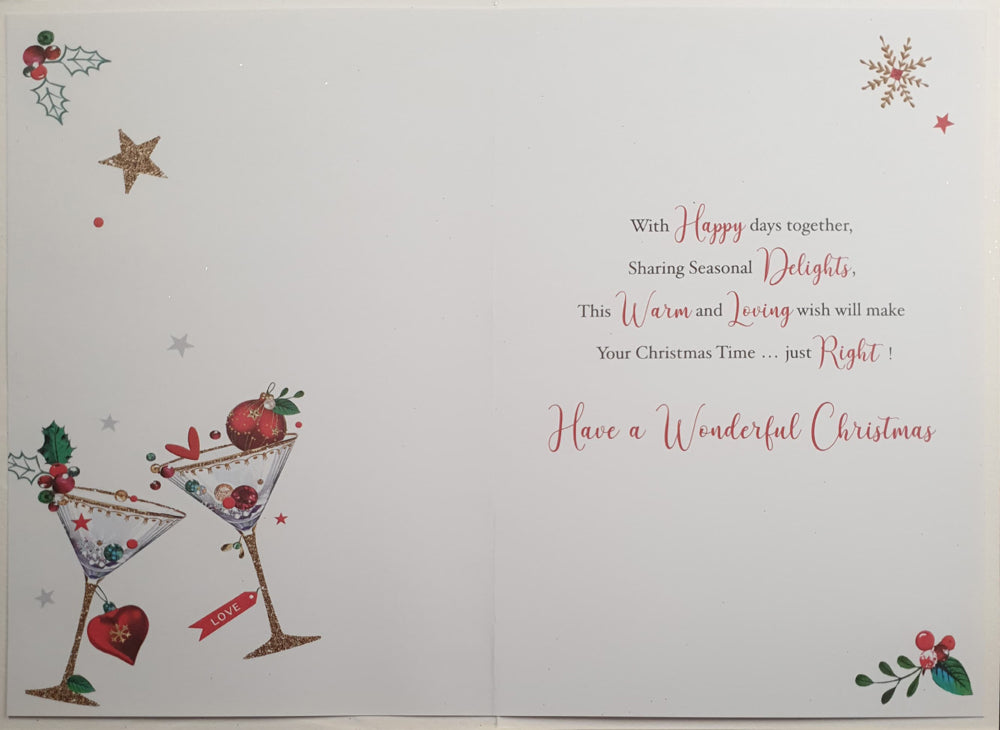 With Happy days together,
Sharing Seasonal Delights,
This Warm and Loving wish will make
Your Christmas Time ... just Right !
Have a Wonderful Christmas
LOVE